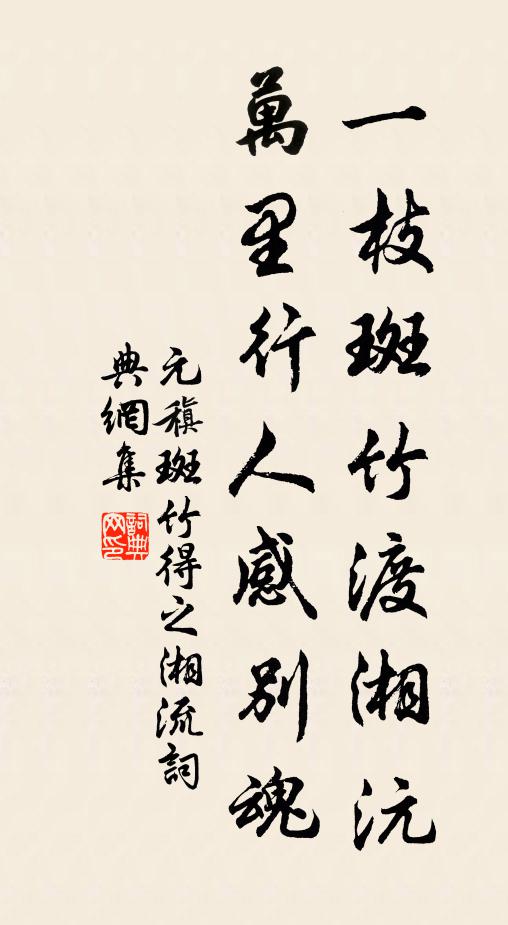 一枝斑竹渡湘沅
萬里行人感別魂
元稹斑竹得之湘流詞
典網集
詞典網印